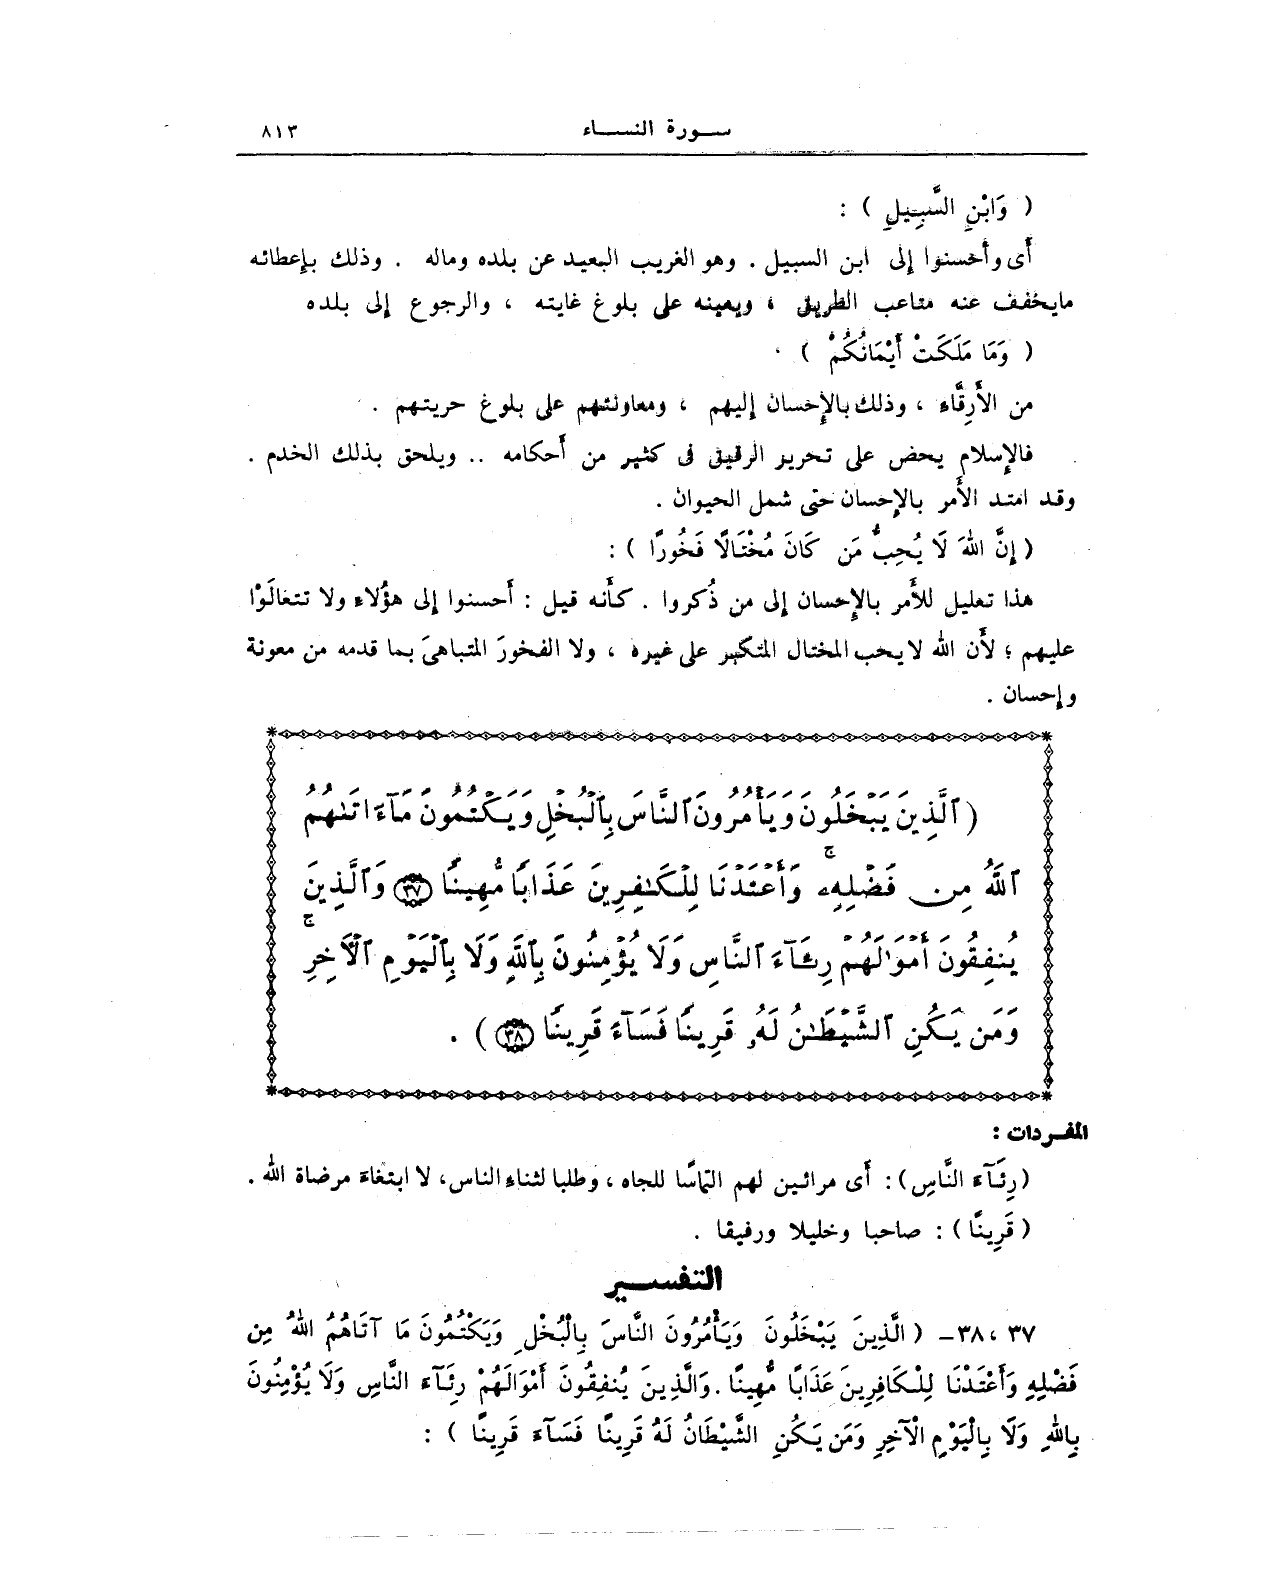 سورة النساء ٨١٣
( وَابْنِ السَّبِيلِ ) :
أى وأحسنوا إلى ابن السبيل . وهو الغريب البعيد عن بلده وماله . وذلك بإعطائه
مايخفف عنه متاعب الطريق ، ويعينه على بلوغ غايته ، والرجوع إلى بلده
( وَمَا مَلَكَتْ أَيْمَانُكُمْ ) .
من الأَرِقَّاء ، وذلك بالإحسان إليهم ، ومعاونتهم على بلوغ حريتهم .
فالإسلام يحض على تحرير الرقيق فى كثير من أحكامه .. ويلحق بذلك الخدم .
وقد امتد الأمر بالإحسان حتى شمل الحيوان .
( إِنَّ اللهَ لَا يُحِبُّ مَن كَانَ مُخْتَالًا فَخُورًا ) :
هذا تعليل للأمر بالإحسان إلى من ذُكروا . كأنه قيل : أحسنوا إلى هؤلاء ولا تتعَالَوْا
عليهم ؛ لأن الله لا يحب المختال المتكبر على غيره ، ولا الفخورَ المتباهىَ بما قدمه من معونة
وإحسان .
(ٱلَّذِينَ يَبْخَلُونَ وَيَأْمُرُونَ ٱلنَّاسَ بِٱلْبُخْلِ وَيَكْتُمُونَ مَآ ءَاتَىٰهُمُ
ٱللَّهُ مِن فَضْلِهِۦ ۚ وَأَعْتَدْنَا لِلْكَٰفِرِينَ عَذَابًا مُّهِينًا ٣٧ وَٱلَّذِينَ
يُنفِقُونَ أَمْوَٰلَهُمْ رِئَآءَ ٱلنَّاسِ وَلَا يُؤْمِنُونَ بِٱللَّهِ وَلَا بِٱلْيَوْمِ ٱلْآخِرِ ۚ
وَمَن يَكُنِ ٱلشَّيْطَٰنُ لَهُۥ قَرِينًا فَسَآءَ قَرِينًا ٣٨) .
المفردات :
(رِئَآءَ النَّاسِ) : أى مرائين لهم التماسًا للجاه ، وطلبا لثناء الناس، لا ابتغاءَ مرضاة الله .
( قَرِينًا ) : صاحبا وخليلا ورفيقا .
التفسير
٣٧ ،٣٨- ( الَّذِينَ يَبْخَلُونَ وَيَأْمُرُونَ النَّاسَ بِالْبُخْلِ وَيَكْتُمُونَ مَا آتَاهُمُ اللهُ مِن
فَضْلِهِ وَأَعْتَدْنَا لِلْكَافِرِينَ عَذَابًا مُّهِينًا . وَالَّذِينَ يُنفِقُونَ أَمْوَالَهُمْ رِئَآءَ النَّاسِ وَلَا يُؤْمِنُونَ
بِاللهِ وَلَا بِالْيَوْمِ الْآخِرِ وَمَن يَكُنِ الشَّيْطَانُ لَهُ قَرِينًا فَسَآءَ قَرِينًا ) :